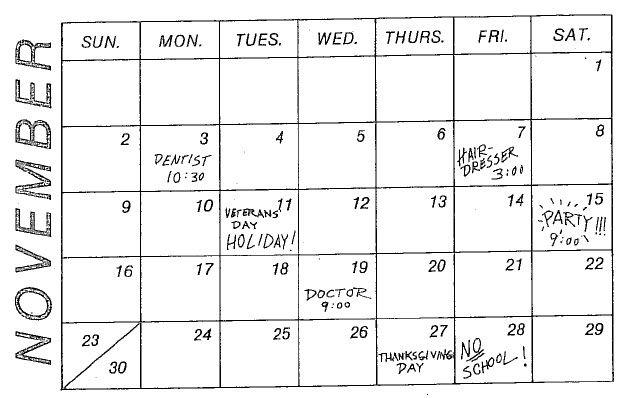 NOVEMBER
SUN. MON. TUES. WED. THURS. FRI. SAT.
1
2 3 4 5 6 7 8
DENTIST
10:30
HAIR-
DRESSER
3:00
9 10 11 12 13 14 15
VETERANS'
DAY
HOLIDAY!
PARTY!!!
9:00
16 17 18 19 20 21 22
DOCTOR
9:00
23 24 25 26 27 28 29
30
THANKSGIVING
DAY
NO
SCHOOL!